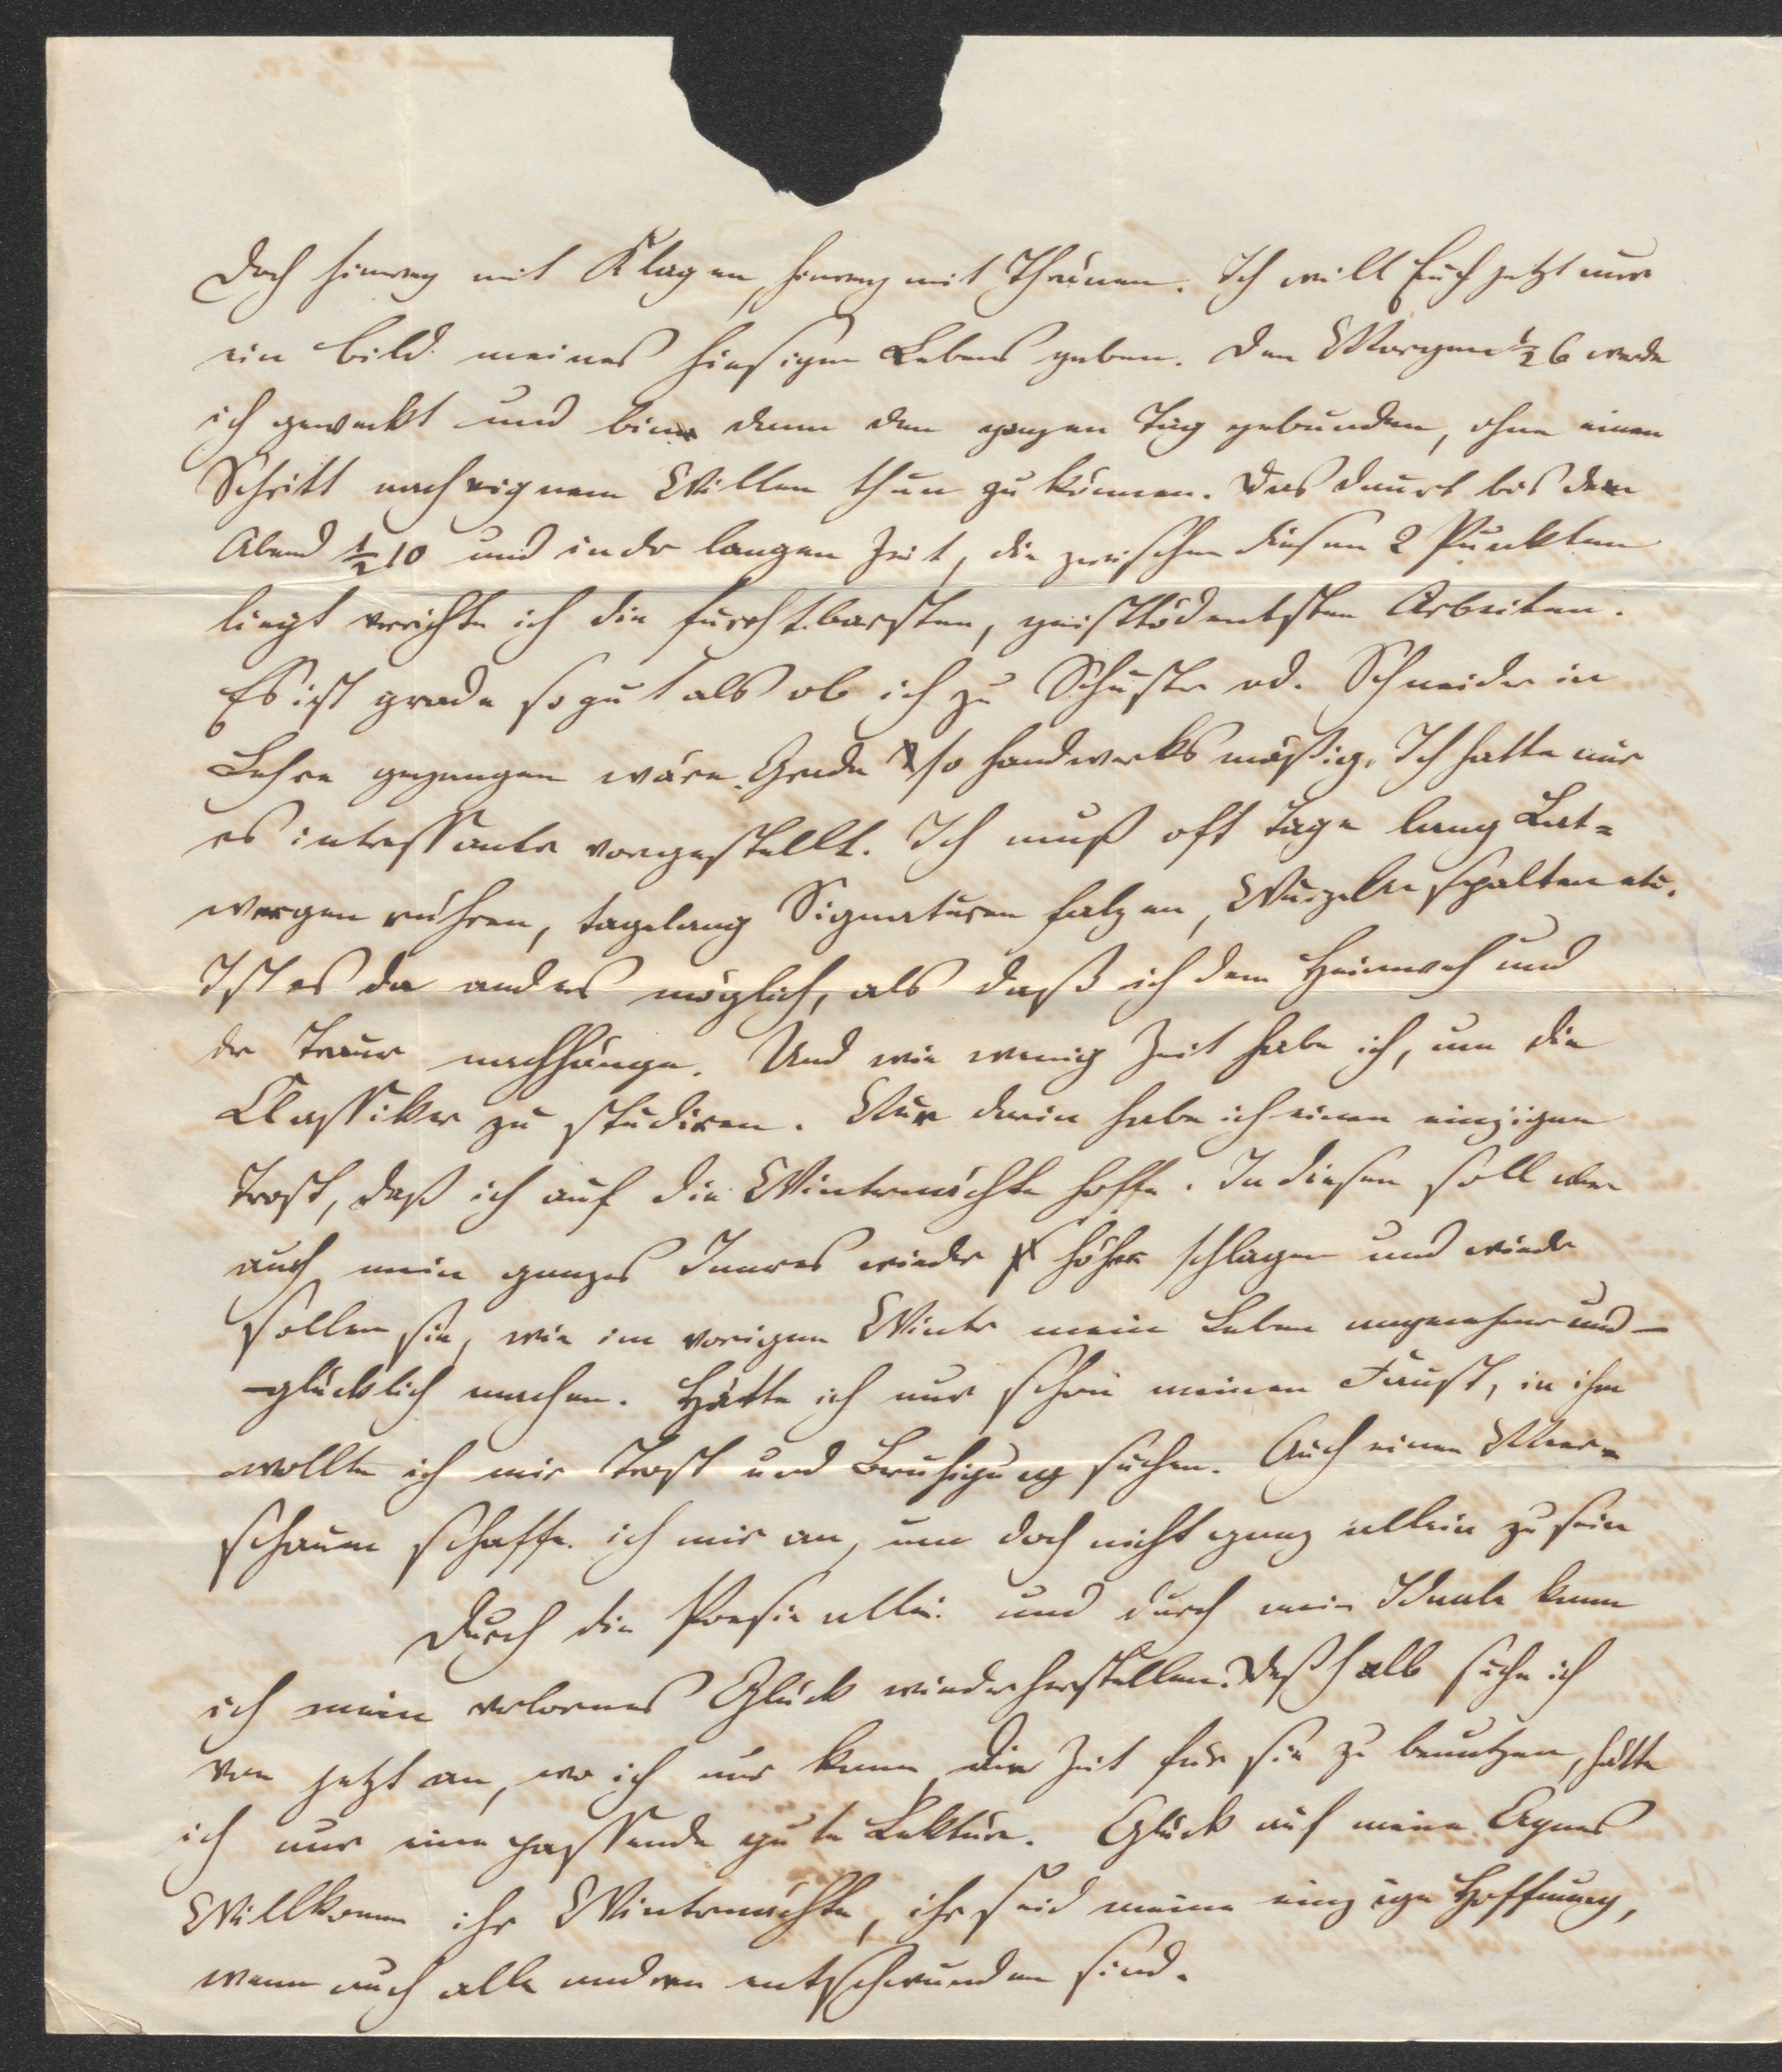 Doch hinweg mit Klagen, hinweg mit Thränen. Ich will Euch jetzt nur
ein Bild meines hiesigen Lebens geben. Den Morgen ½ 6 werde
ich geweckt und bin dann den ganzen Tag gebunden, ohne einen
Schritt nach eignem Willen thun zu können. Das dauert bis den
Abend ½ 10 und in der langen Zeit, die zwischen diesen 2 Punkten
liegt verrichte ich die furchtbarsten, geisttödentsten Arbeiten.
Es ist grade so gut als ob ich zu Schuster od. Schneider in
Lehre gegangen wäre. Grade so handwerksmäßig. Ich hatte mir
es intressanter vorgestellt. Ich muß oft Tage lang Lat=
wergen rühren, tagelang Signaturen falzen, Wurzeln spalten etc.
Ist es da anders möglich, als daß ich dem Heimweh und
der Trauer nachhänge. Und wie wenig Zeit habe ich, um die
Classiker zu studiren. Nur darin habe ich einen einzigen
Trost, daß ich auf die Winternächte hoffe. In diesen soll aber
auch mein ganzes Innres wieder höher schlagen und wieder
sollen sie, wie im vorigen Winter mein Leben angenehm und –
–glücklich machen. Hätte ich nur schon meinen Faust, in ihm
wollte ich mir Trost und Beruhigung suchen. Auch einen Meer=
schaum schaffe ich mir an, um doch nicht ganz allein zu sein
Durch die Poesie allein und durch mein Ideale kann
ich mein verlornes Glück wiederherstellen. Deßhalb suche ich
von jetzt an, wo ich nur kann die Zeit für sie zu benutzen, hätte
ich nur eine passende gute Lektüre. Glück auf meine Agnes
Willkomm ihr Winternächte, ihr seid meine einzige Hoffnung,
wenn auch alle andren entschwunden sind.